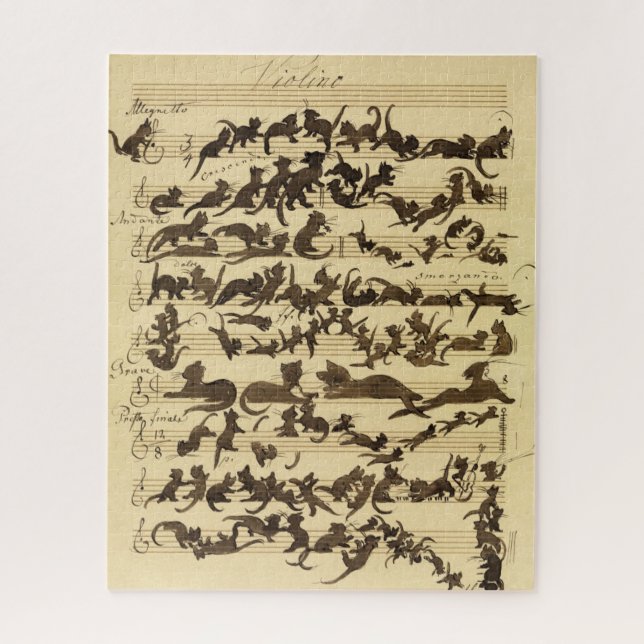 Violino
Allegretto
3/4
Crescendo
Andante
dolce
smorzando.
ff.
Grave
Presto finale
12/8
p.